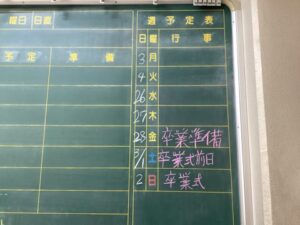 曜日 日直
予定 準備
週予定表
日 曜 行事
3 月
4 火
26 水
27 木
28 金 卒業準備
3/1 土 卒業式前日
2 日 卒業式